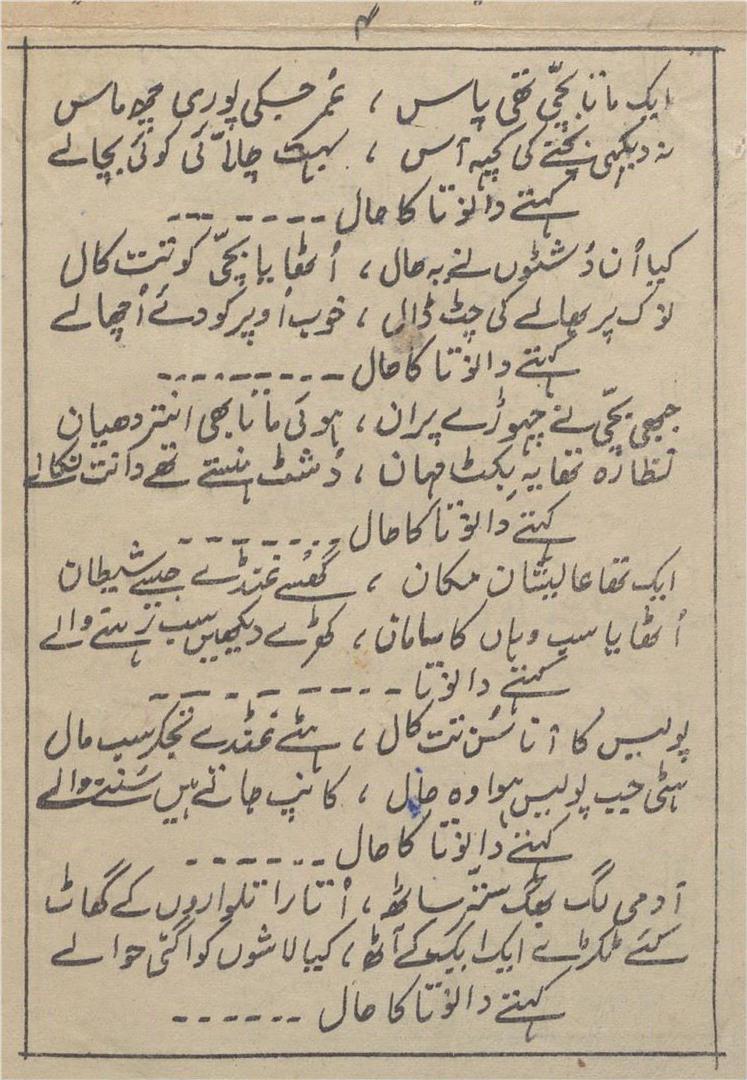 ۴
ایک ماتا بچّی تھی پاس ، عُمر جسکی پوری چھ ماس
نہ دیکھی بچنے کی کچھ آس ، بہت چلاّئی کوئی بچالے
کہتے دانوتا کا حال ---------
کیا اُن دُشٹوں نے یہ حال ، اُٹھایا بچّی کو تت کال
نوک پر بھالے کی چٹ ڈالی ، خوب اُوپر کو دئے اُچھالے
کہتے دانوتا کا حال ---------
جبھی بچّی نے چھوڑے پران ، ہوئی ماتا بھی انتردھیان
نظارہ تھا یہ بکٹ مہان ، دُشٹ ہنستے تھے دانت نکالے
کہتے دانوتا کا حال --------
ایک تھا عالیشان مکان ، گھُسے غنڈے جیسے شیطان
اُٹھایا سب وہاں کا سامان ، کھڑے دیکھیں سب رہنے والے
کہتے دانوتا ---------
پولیس کا آنا سُن تت کال ، ہٹے غنڈے تجکر سب مال
ہٹی جب پولیس ہوا وہ حال ، کانپ جاتے ہیں سُننے والے
کہتے دانوتا کا حال ------
آدمی لگ بھگ ستّر ساٹھ ، اُتارا تلواروں کے گھاٹ
کئے ٹکڑے ایک ایک کے آٹھ ، کیا لاشوں کو اگنی حوالے
کہتے دانوتا کا حال ------